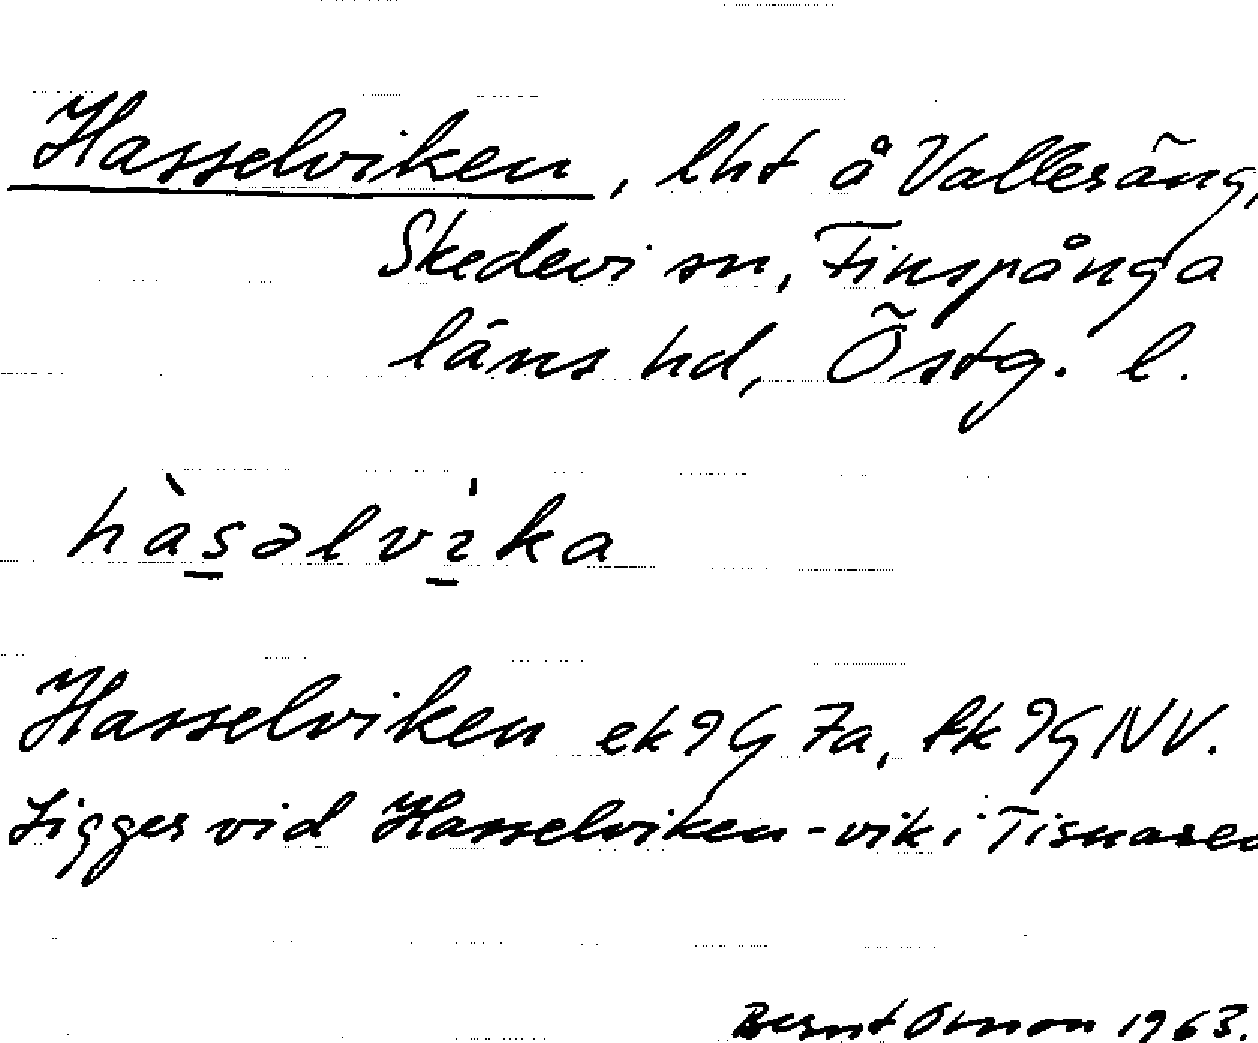 Hasselviken, lht å Vallesäng,
Skedevi sn, Finspånga
läns hd, Östg. l.
hàsəlvìka
Hasselviken ek 9G 7a, tk 9G NV.
Ligger vid Hasselviken - vik i Tisnaren
Bernt 1963.